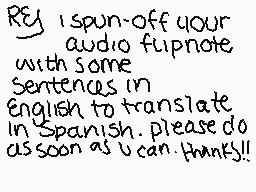 REY i spun-off your
audio flipnote
with some
sentences in
English to translate
in Spanish. please do
as soon as u can. thanks!!